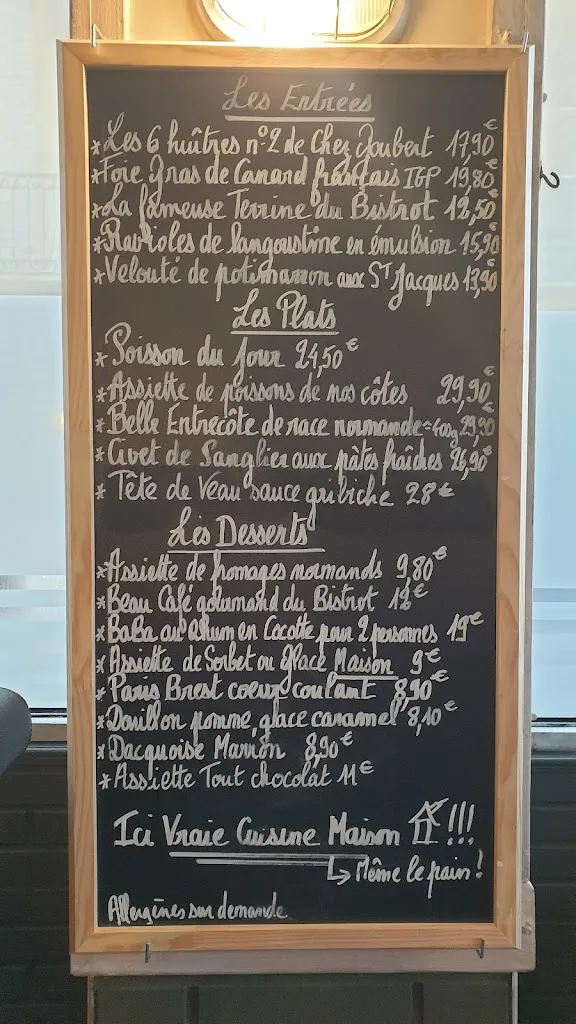 Les Entrées
*Les 6 huîtres n°2 de Chez Joubert 17,90€
*Foie Gras de Canard français IGP 19,80€
*La fameuse Terrine du Bistrot 12,50€
*Ravioles de langoustine en émulsion 15,90€
*Velouté de potimarron aux St Jacques 13,90€
Les Plats
*Poisson du jour 24,50€
*Assiette de poissons de nos côtes 29,90€
*Belle Entrecôte de race normande=400g 29,90€
*Civet de Sanglier aux pâtes fraîches 26,90€
*Tête de Veau sauce gribiche 28€
Les Desserts
*Assiette de fromages normands 9,80€
*Beau Café gourmand du Bistrot 12€
*BaBa au rhum en Cocotte pour 2 personnes 19€
*Assiette de Sorbet ou glace Maison 9€
*Paris Brest coeur coulant 8,90€
*Douillon pomme glace caramel 8,10€
*Dacquoise Marron 8,90€
*Assiette Tout chocolat 11€
Ici Vraie Cuisine Maison !!!
↳ Même le pain !
Allergènes sur demande